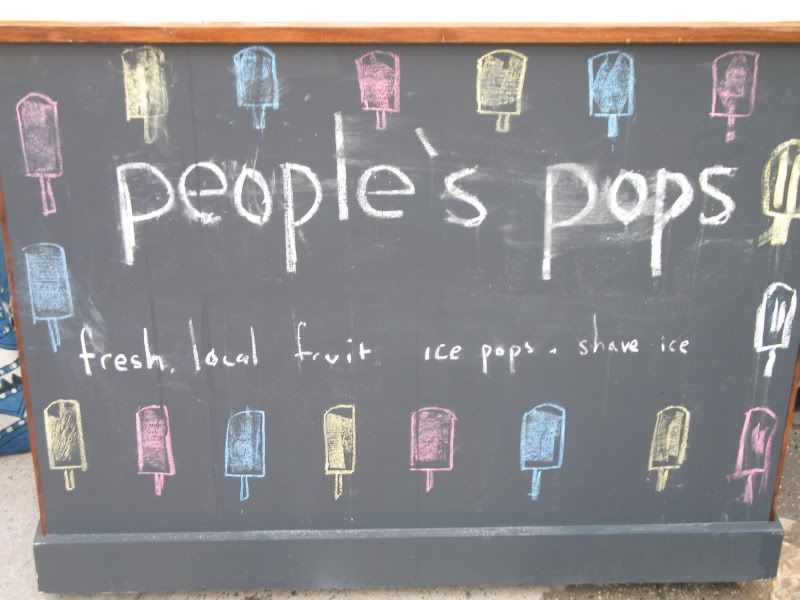 people's pops
fresh, local fruit ice pops + shave ice